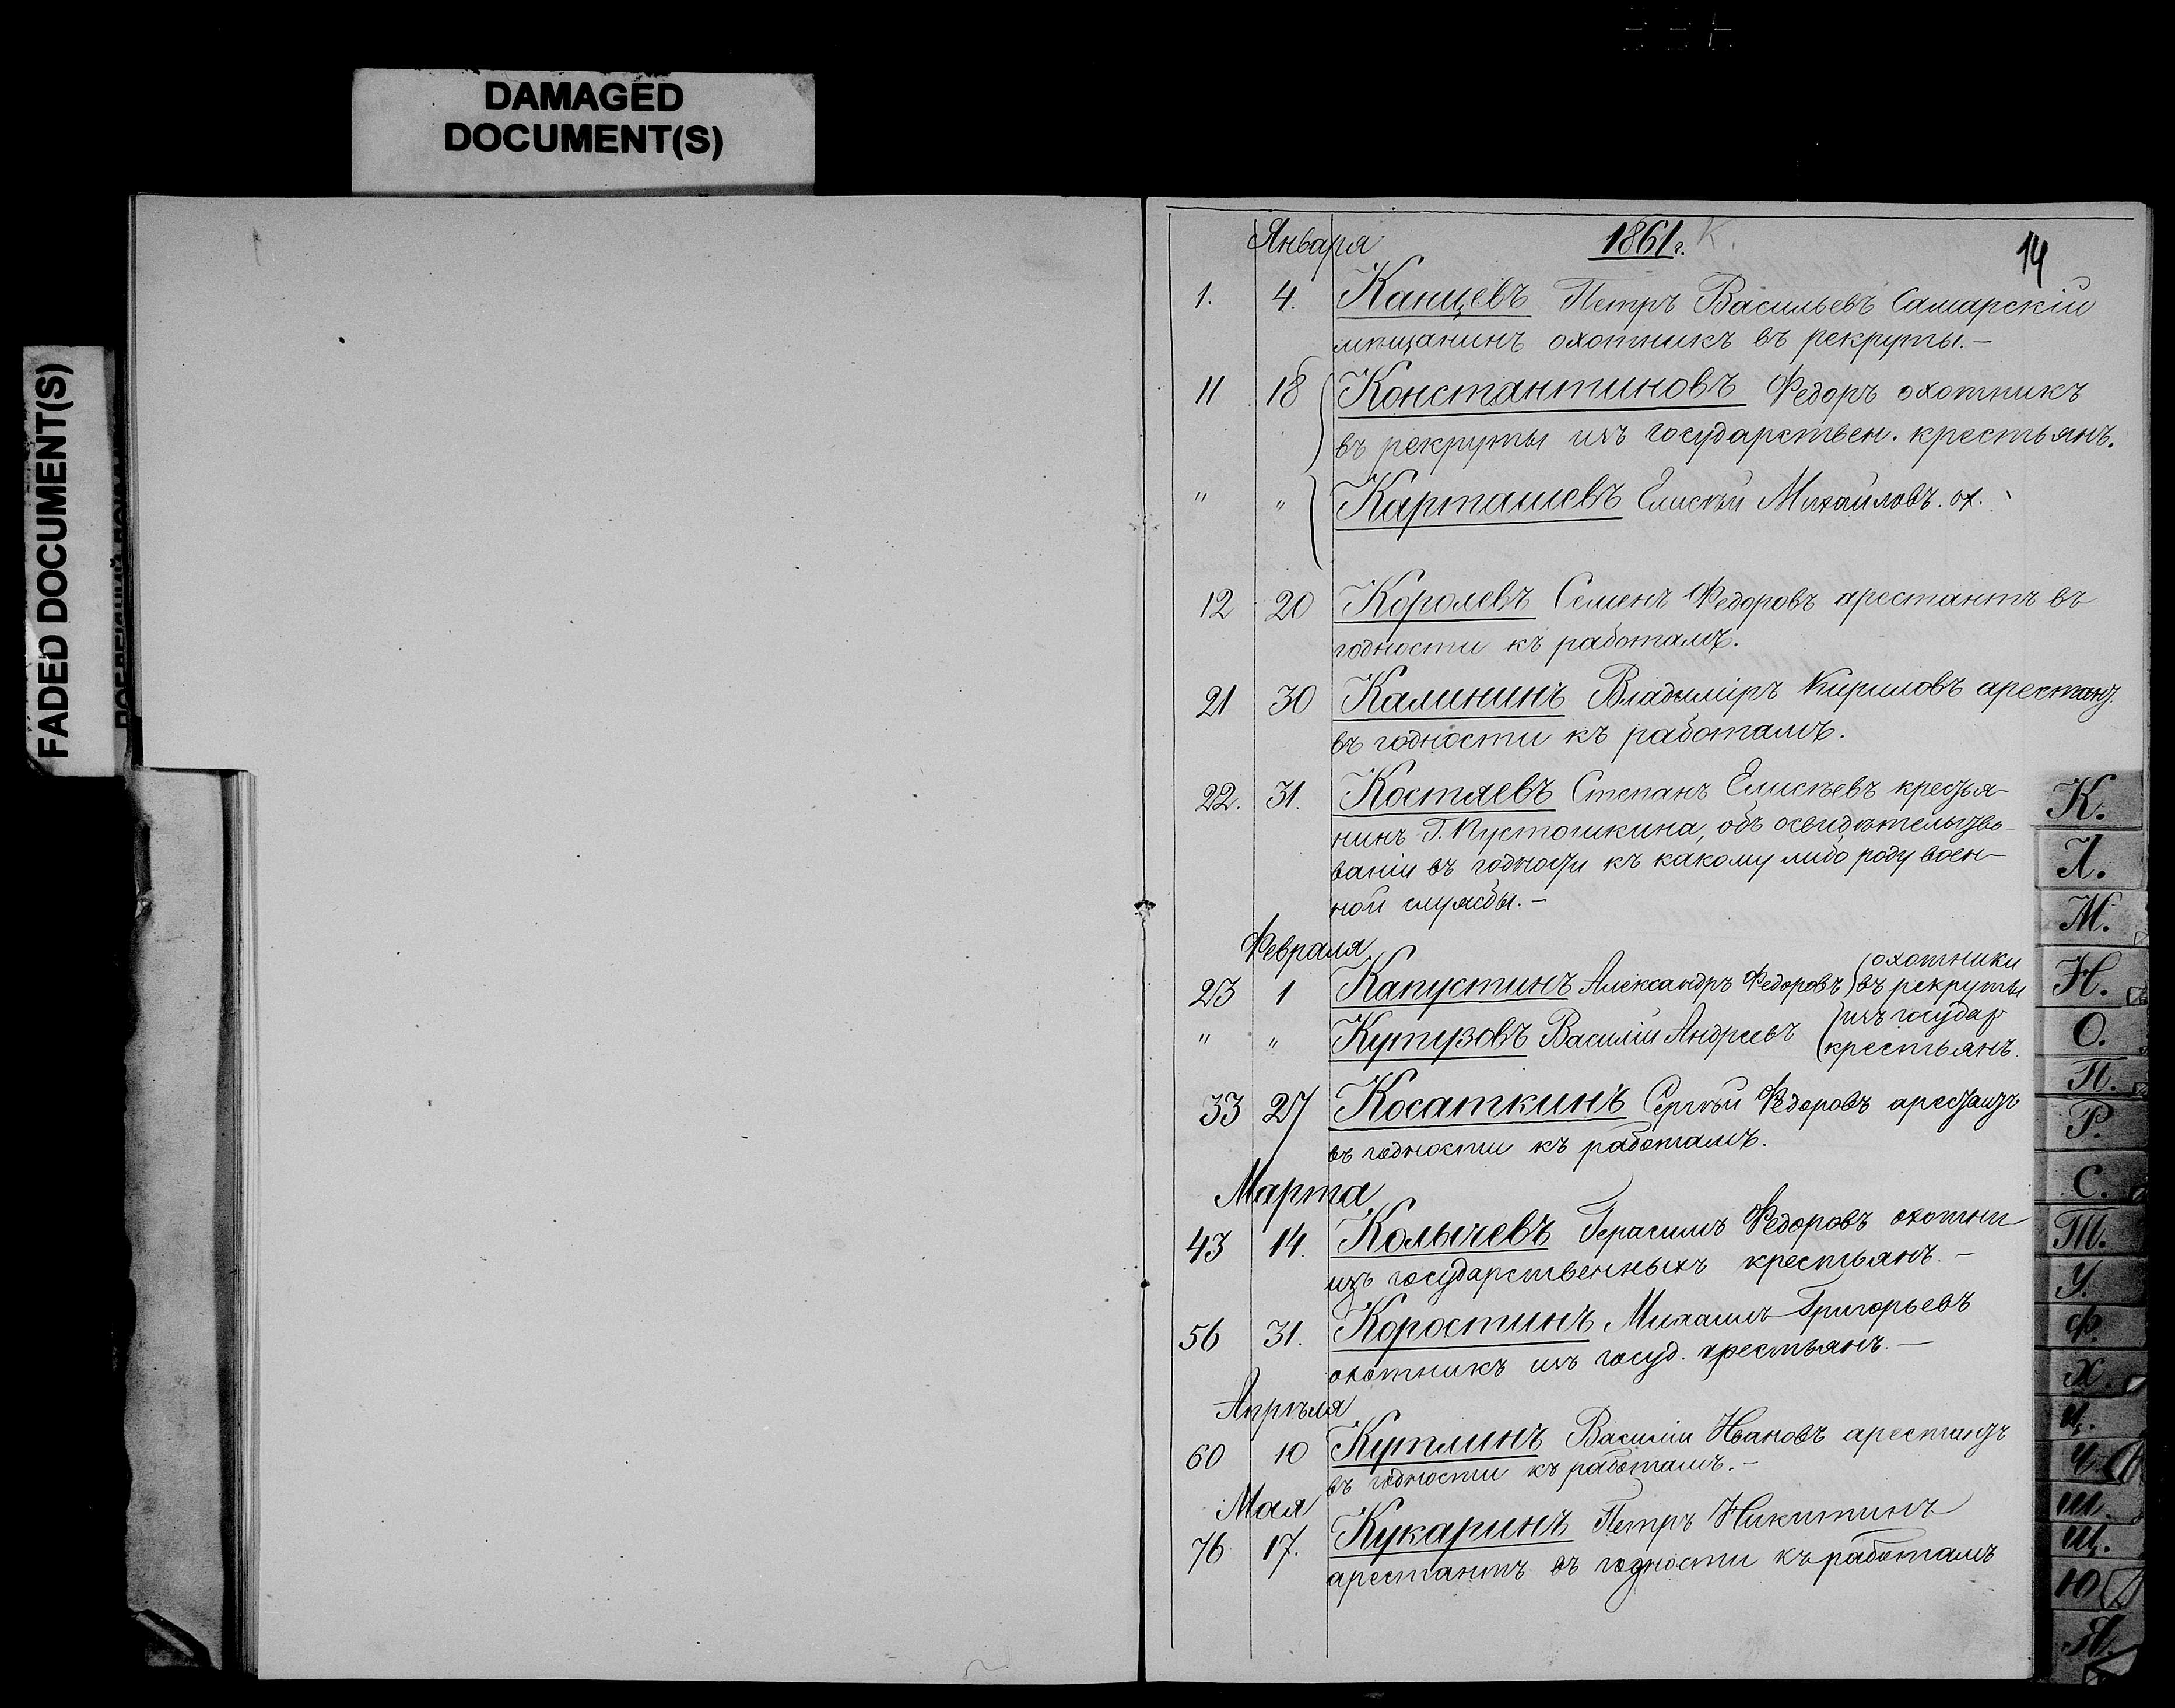 DAMAGED
DOCUMENT(S)
FADED DOCUMENT(S)
Января 1861 г. К. 14
1. 4. Канцевъ Петръ Васильевъ Самарскій
мѣщанинъ охотникъ въ рекруты.—
11 18 Константиновъ Федоръ охотникъ
въ рекруты изъ государствен. крестьянъ.
" " Карташевъ Елисѣй Михайловъ. ох.
12 20 Королевъ Семенъ Федоровъ арестантъ въ
годности къ работамъ.
21 30 Калининъ Владиміръ Кириловъ арестант.
въ годности къ работамъ.
22. 31. Костяевъ Степанъ Елисѣевъ крестья-
нинъ Г. Пустошкина, объ освидѣтельство-
ваніи въ годности къ какому либо роду воен-
ной службы.—
Февраля
23 1 Капустинъ Александръ Федоровъ охотники въ рекруты
" " Кутузовъ Василій Андреевъ изъ государ крестьянъ.
33 27 Косаткинъ Сергѣй Федоровъ арестантъ
въ годности къ работамъ.
Марта
43 14. Колычевъ Герасимъ Федоровъ охотни
изъ государственныхъ крестьянъ.—
56 31. Коростинъ Михаилъ Григорьевъ
охотникъ изъ госуд. крестьянъ.—
Апрѣля
60 10 Кутлинъ Василій Ивановъ арестантъ
въ годности къ работамъ.—
Мая
76 17. Кукаринъ Петръ Никитинъ
арестантъ въ годности къ работамъ
К.
Л.
М.
Н.
О.
П.
Р.
С.
Т.
У.
Ф.
Х.
Ц.
Ч.
Ш.
Щ.
Ю
Я